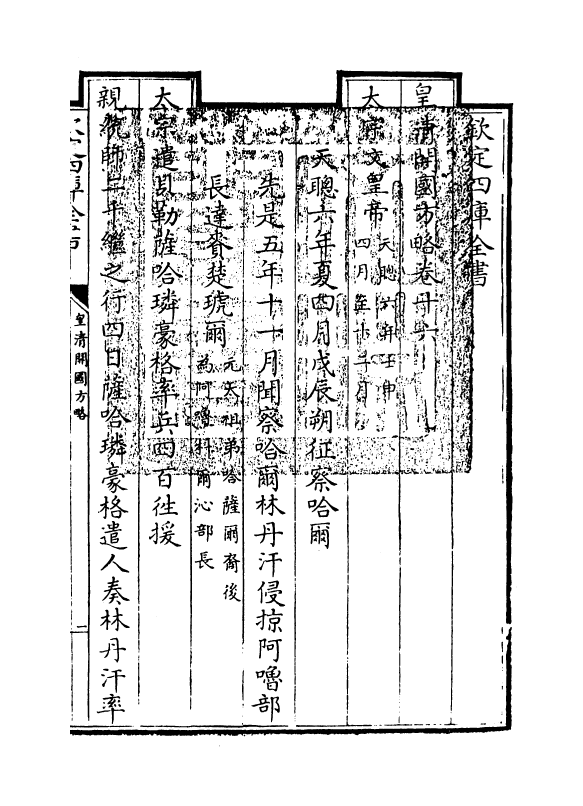 欽定四庫全書
皇清開國方略卷十六
太宗文皇帝
天聰六年壬申
四月
天聰六年夏四月戊辰朔征察哈爾
先是五年十一月聞察哈爾林丹汗侵掠阿嚕部
長達賚楚琥爾
元太祖弟哈薩爾裔後
為阿嚕科爾沁部長
太宗遣貝勒薩哈璘豪格率兵西百往援
親統師三千繼之行四日薩哈璘豪格遣人奏林丹汗率
皇清開國方略